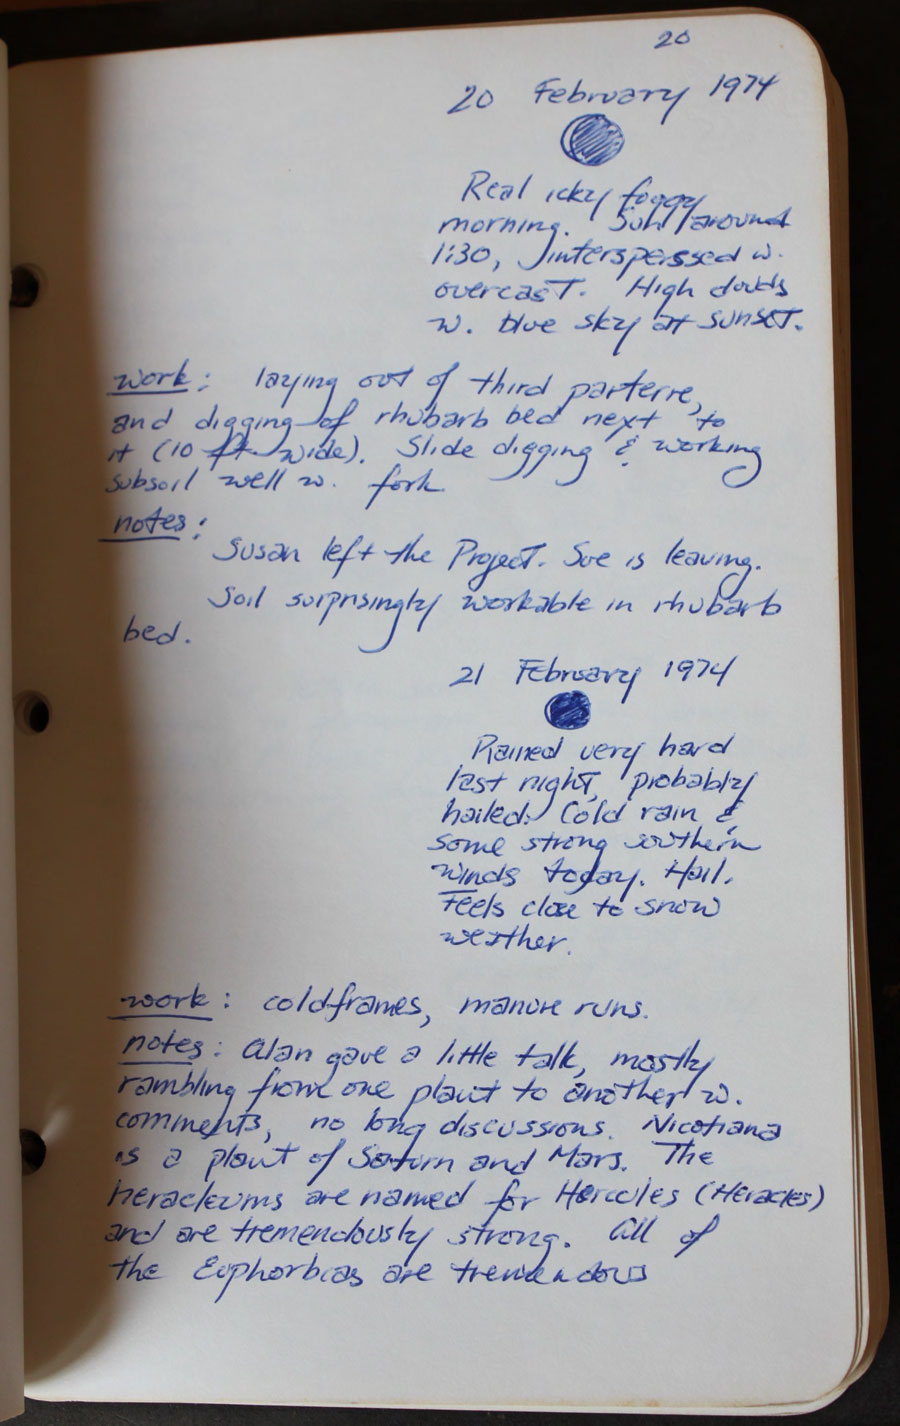 20
20 February 1974
Real icky foggy
morning. Sun around
1:30, interspersed w.
overcast. High clouds
w. blue sky at sunset.
work: laying out of third parterre,
and digging of rhubarb bed next to
it (10 ft wide). Slide digging & working
subsoil well w. fork
notes:
Susan left the Project. Sue is leaving.
Soil surprisingly workable in rhubarb
bed.
21 February 1974
Rained very hard
last night, probably
hailed. Cold rain &
some strong southern
winds today. Hail.
Feels close to snow
weather.
work: coldframes, manure runs.
notes: Alan gave a little talk, mostly
rambling from one plant to another w.
comments, no long discussions. Nicotiana
is a plant of Saturn and Mars. The
heracleums are named for Hercules (Heracles)
and are tremendously strong. All of
the Euphorbias are tremendous